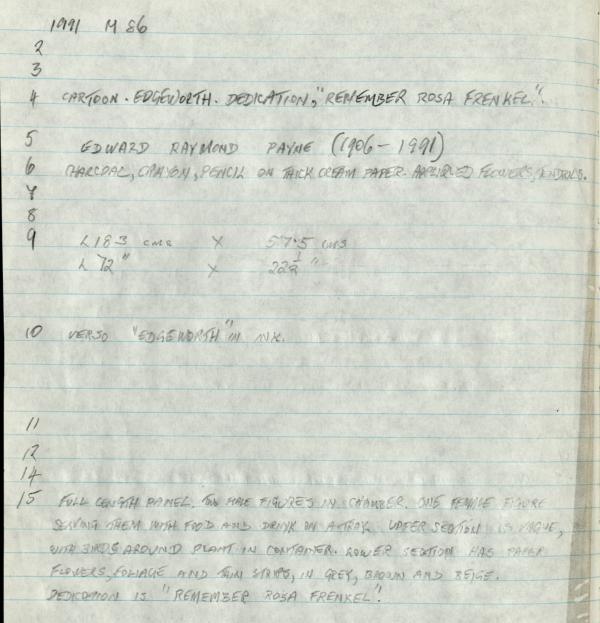 1991 M 86
2
3
4 CARTOON. EDGEWORTH. DEDICATION, "REMEMBER ROSA FRENKEL".
5 EDWARD RAYMOND PAYNE (1906-1991)
6 CHARCOAL, CRAYON, PENCIL ON THICK CREAM PAPER. APPLIED FLOWERS,
7
8
9 L 183 cms X 57.5 cms
L 72" X 22½"
10 VERSO "EDGEWORTH" IN INK.
11
12
14
15 FULL LENGTH PANEL. TWO MALE FIGURES IN CHAMBER. ONE FEMALE FIGURE
SERVING THEM WITH FOOD AND DRINK ON A TRAY. UPPER SECTION IS VAGUE,
WITH BIRDS AROUND PLANT IN CONTAINER. LOWER SECTION HAS PAPER
FLOWERS, FOLIAGE AND THIN STRIPS, IN GREY, BROWN AND BEIGE.
DEDICATION IS "REMEMBER ROSA FRENKEL".